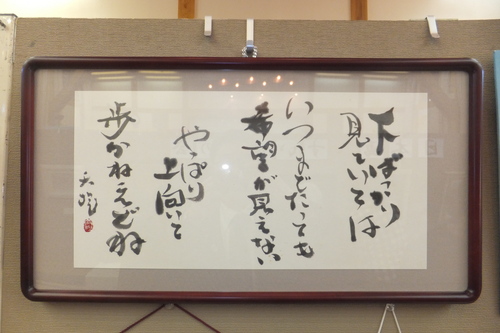 下ばっかり
見ていては
いつまでたっても
希望が見えない
やっぱり
上向いて
歩かねえどね